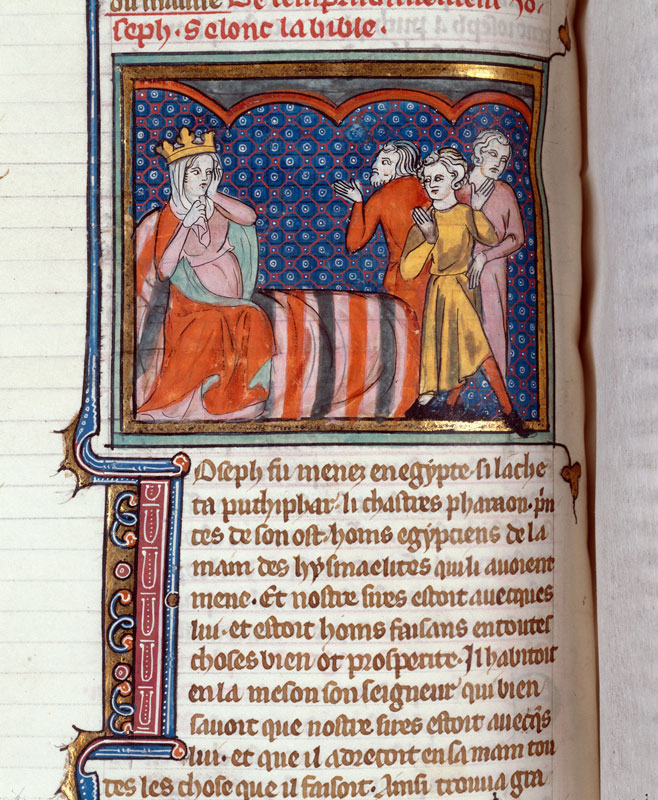 du maistre De lemprisonnement Jo-
seph. Selonc la bible.
Joseph fu menez en egypte. si lache
ta puthiphar. li chastres pharaon. prin
ces de son ost. homs egypciens de la
main des hysmaelites qui li avoient
mene. Et nostre sires estoit avecques
lui. et estoit homs faisans en toutes
choses bien ot prosperite. Il habitoit
en la meson son seigneur qui bien
savoit que nostre sires estoit avecqs
lui. et que il adreçoit en sa main tou
tes les chose que il faisoit. Ainsi trouva gra